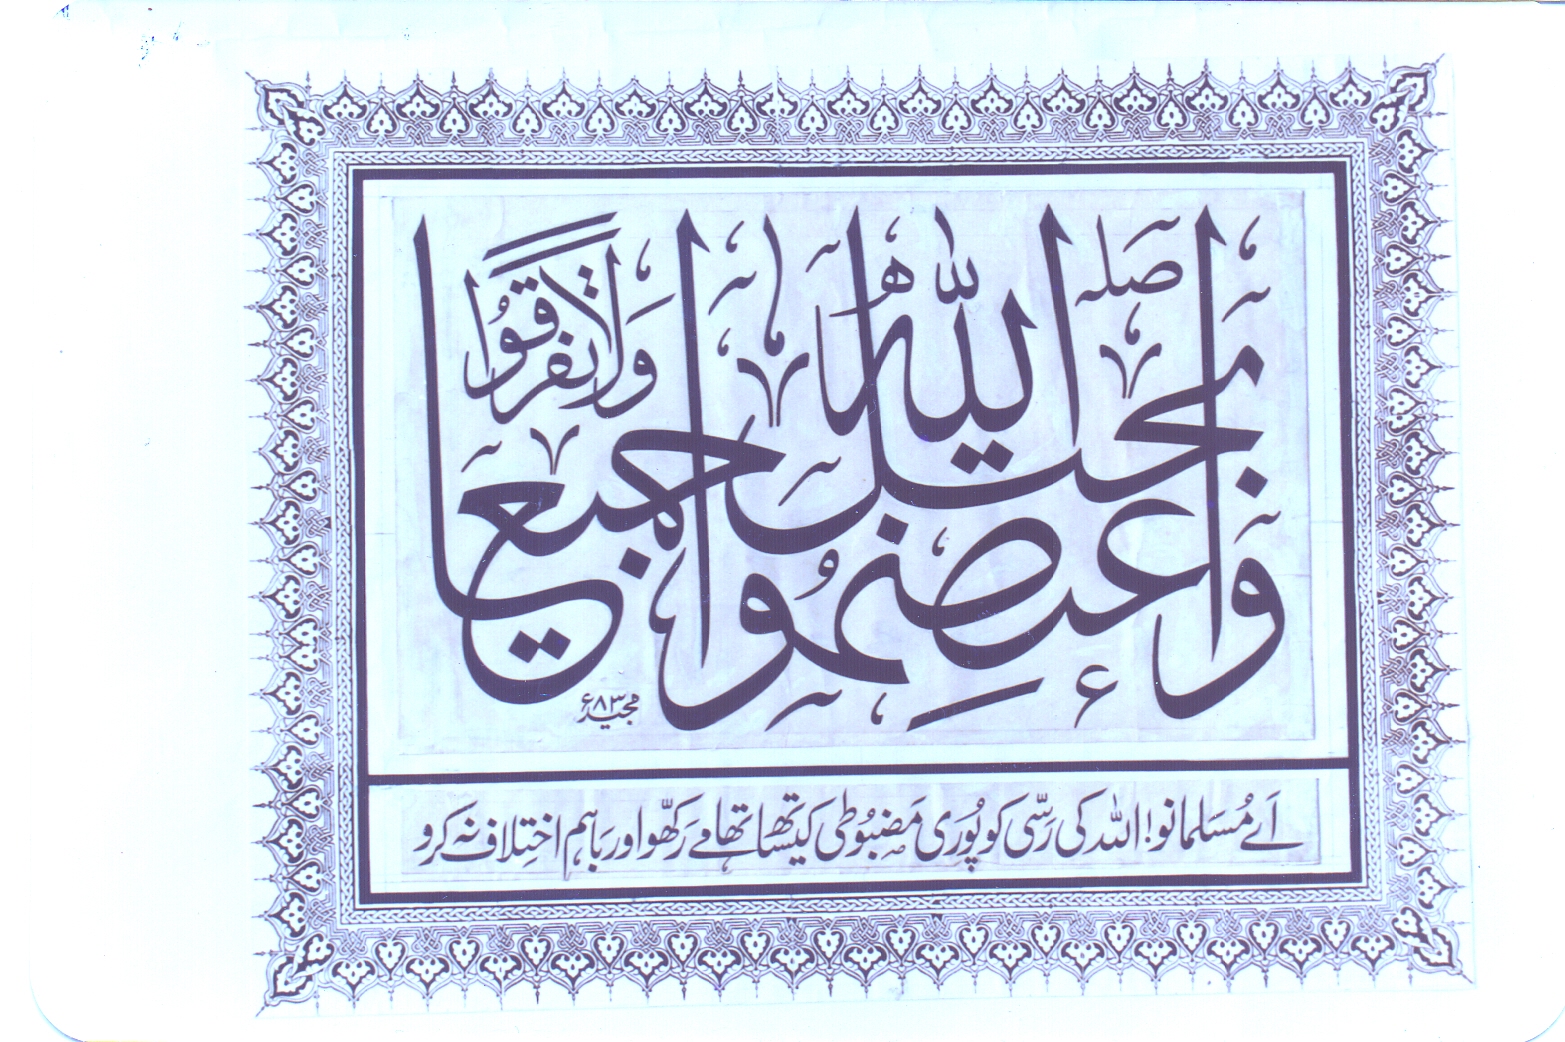 واعتصموا بحبل الله جميعا ولا تفرقوا
صله
مجید ۶۸۳
اَے مُسَلمانو! اللہ کی رسّی کو پُوری مَضبُوطی کیساتھ تھامے رَکھّو اور بَاہم اختِلاف نہ کرو